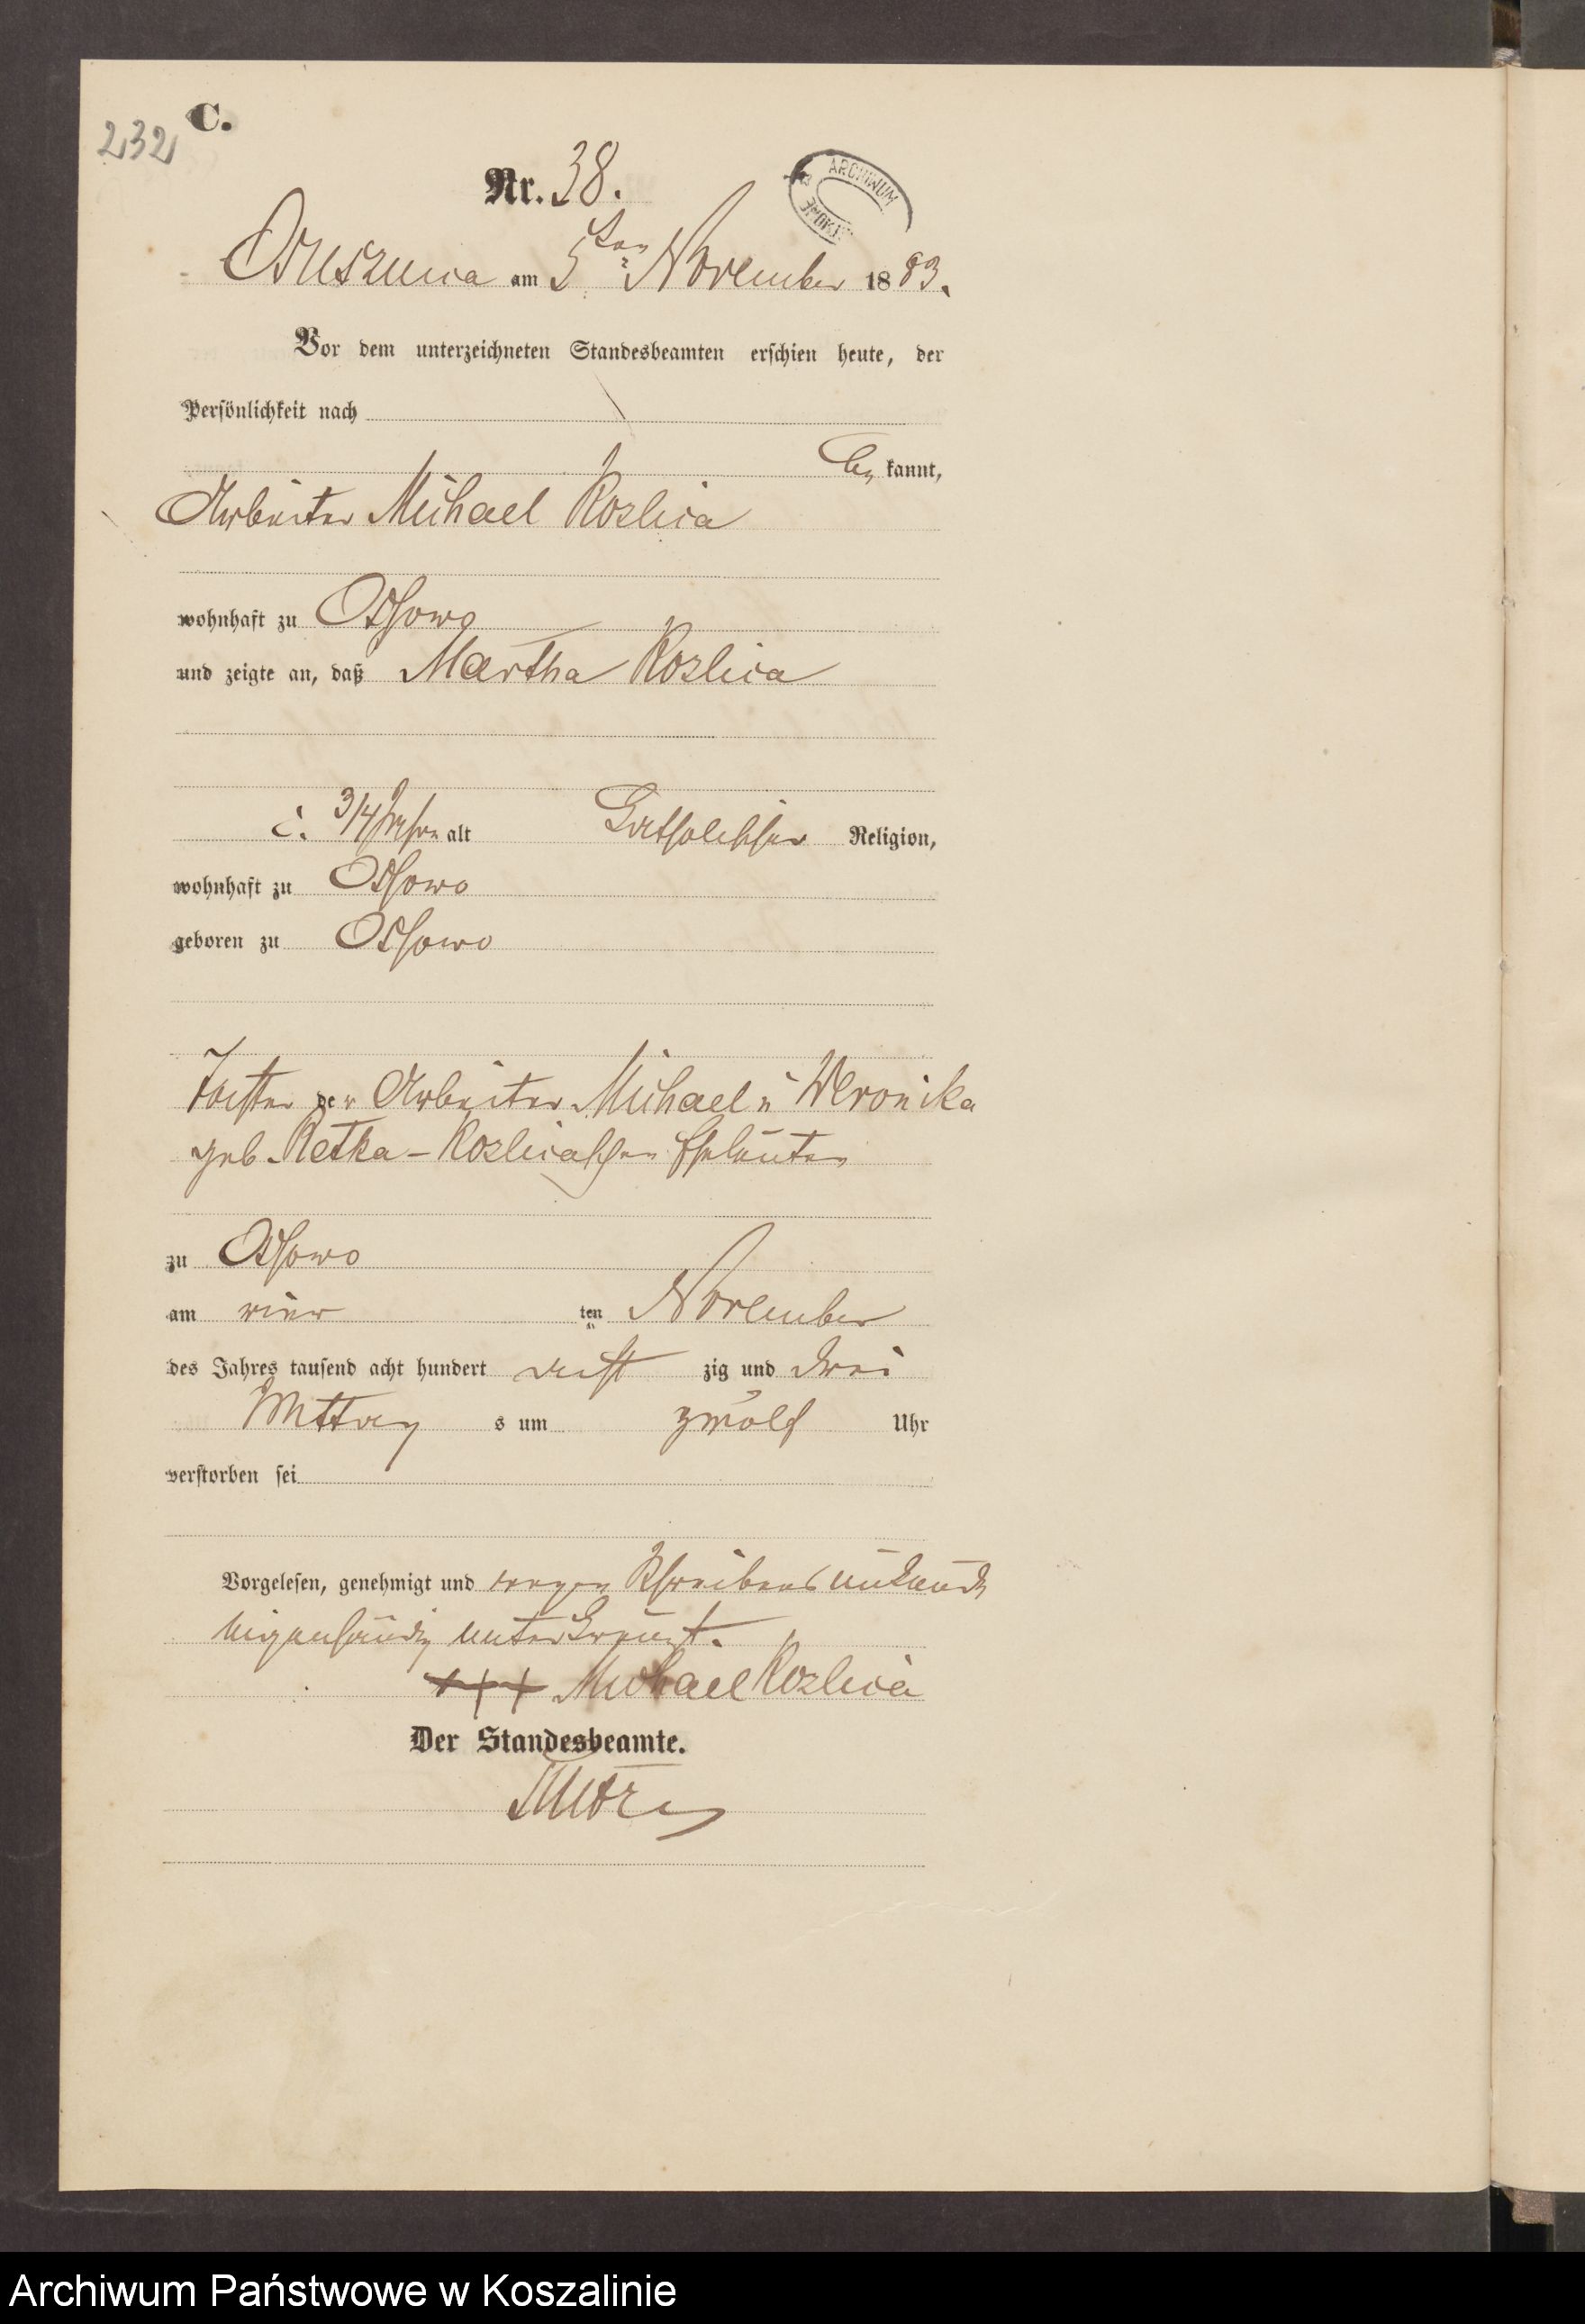 C.
232
Nr. 38.
ARCHIWUM
Osusznica am 5ten November 1883.
Vor dem unterzeichneten Standesbeamten erschien heute, der
Persönlichkeit nach
be kannt,
Arbeiter Michael Kozlica
wohnhaft zu Ossowo
und zeigte an, daß Martha Kozlica
c. 3/4 Jahre alt katholischer Religion,
wohnhaft zu Ossowo
geboren zu Ossowo
Tochter der Arbeiter Michael u Weronika
geb. Retka-Kozlicaschen Eheleuten
zu Ossowo
am vier ten November
des Jahres tausend acht hundert acht zig und drei
Mittag s um zwölf Uhr
verstorben sei
Vorgelesen, genehmigt und wegen Schreibens unkunde
eigenhändig unterkreuzt.
+++ Michael Kozlica
Der Standesbeamte.
Archiwum Państwowe w Koszalinie